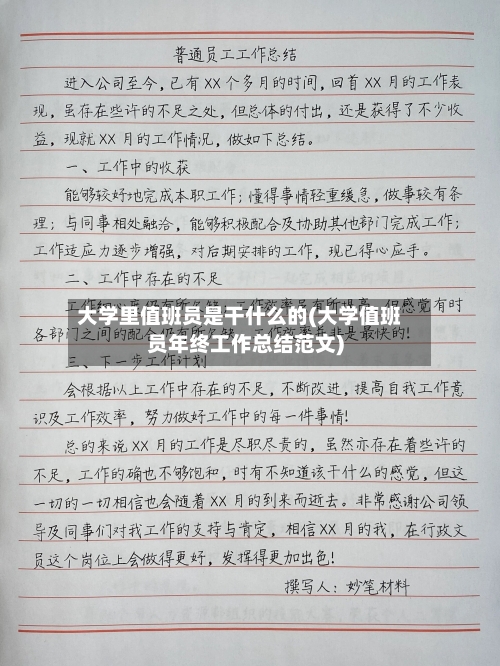 普通员工工作总结
进入公司至今,已有XX个多月的时间,回首XX月的工作表
现,虽存在些许的不足之处,但总体的付出,还是获得了不少收
益,现就XX月的工作情况,做如下总结。
一、工作中的收获
能够较好地完成本职工作;懂得事情轻重缓急,做事较有条
理;与同事相处融洽,能够积极配合及协助其他部门完成工作;
工作适应力逐步增强,对后期安排的工作,现已得心应手。
二、工作中存在的不足
但感觉有时
大学里值班员是干什么的(大学值班
各部门之间的配合
是最快的!
员年终工作总结范文)
三、下一步工作计划
会根据以上工作中存在的不足,不断改进,提高自我工作意
识及工作效率,努力做好工作中的每一件事情!
总的来说XX月的工作是尽职尽责的,虽然亦存在着些许的
不足,工作的确也不够饱和,时有不知道该干什么的感觉,但这
一切的一切相信也会随着XX月的到来而逝去。非常感谢公司领
导及同事们对我工作的支持与肯定,相信XX月的我,在行政文
员这个岗位上会做得更好,发挥得更加出色!
撰写人:妙笔材料